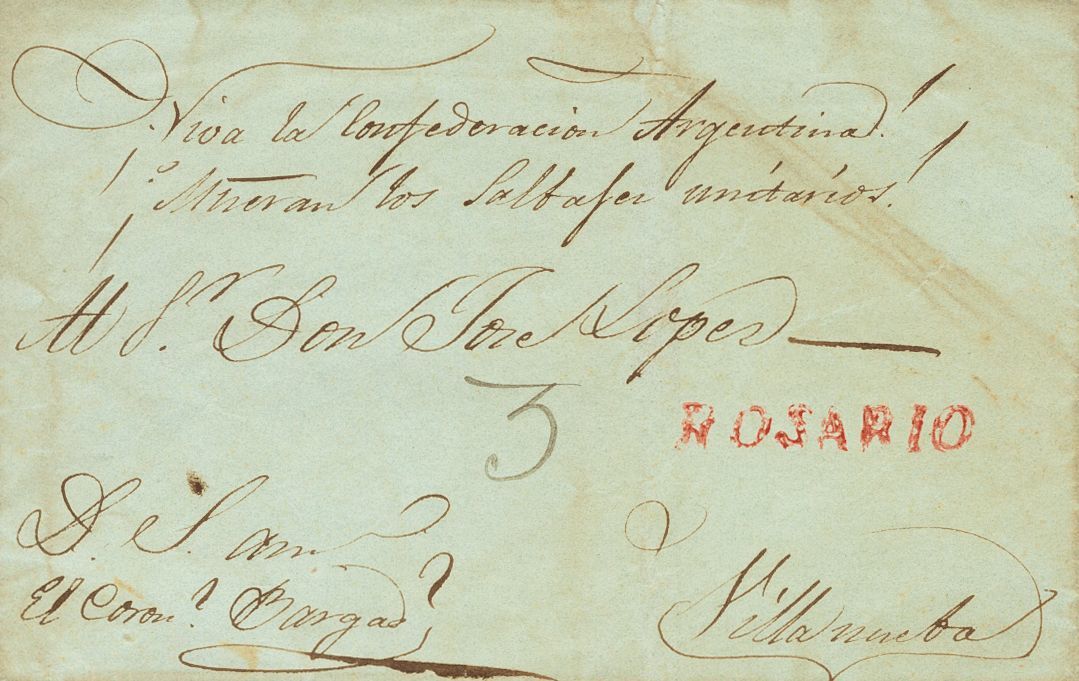 ¡Viva la Confederacion Argentina!
¡Mueran los Salbajes unitarios!
Al Sr. Don Jose Lopes
3
ROSARIO
D. S. am.
El Coron.l Bargas
Villanueba